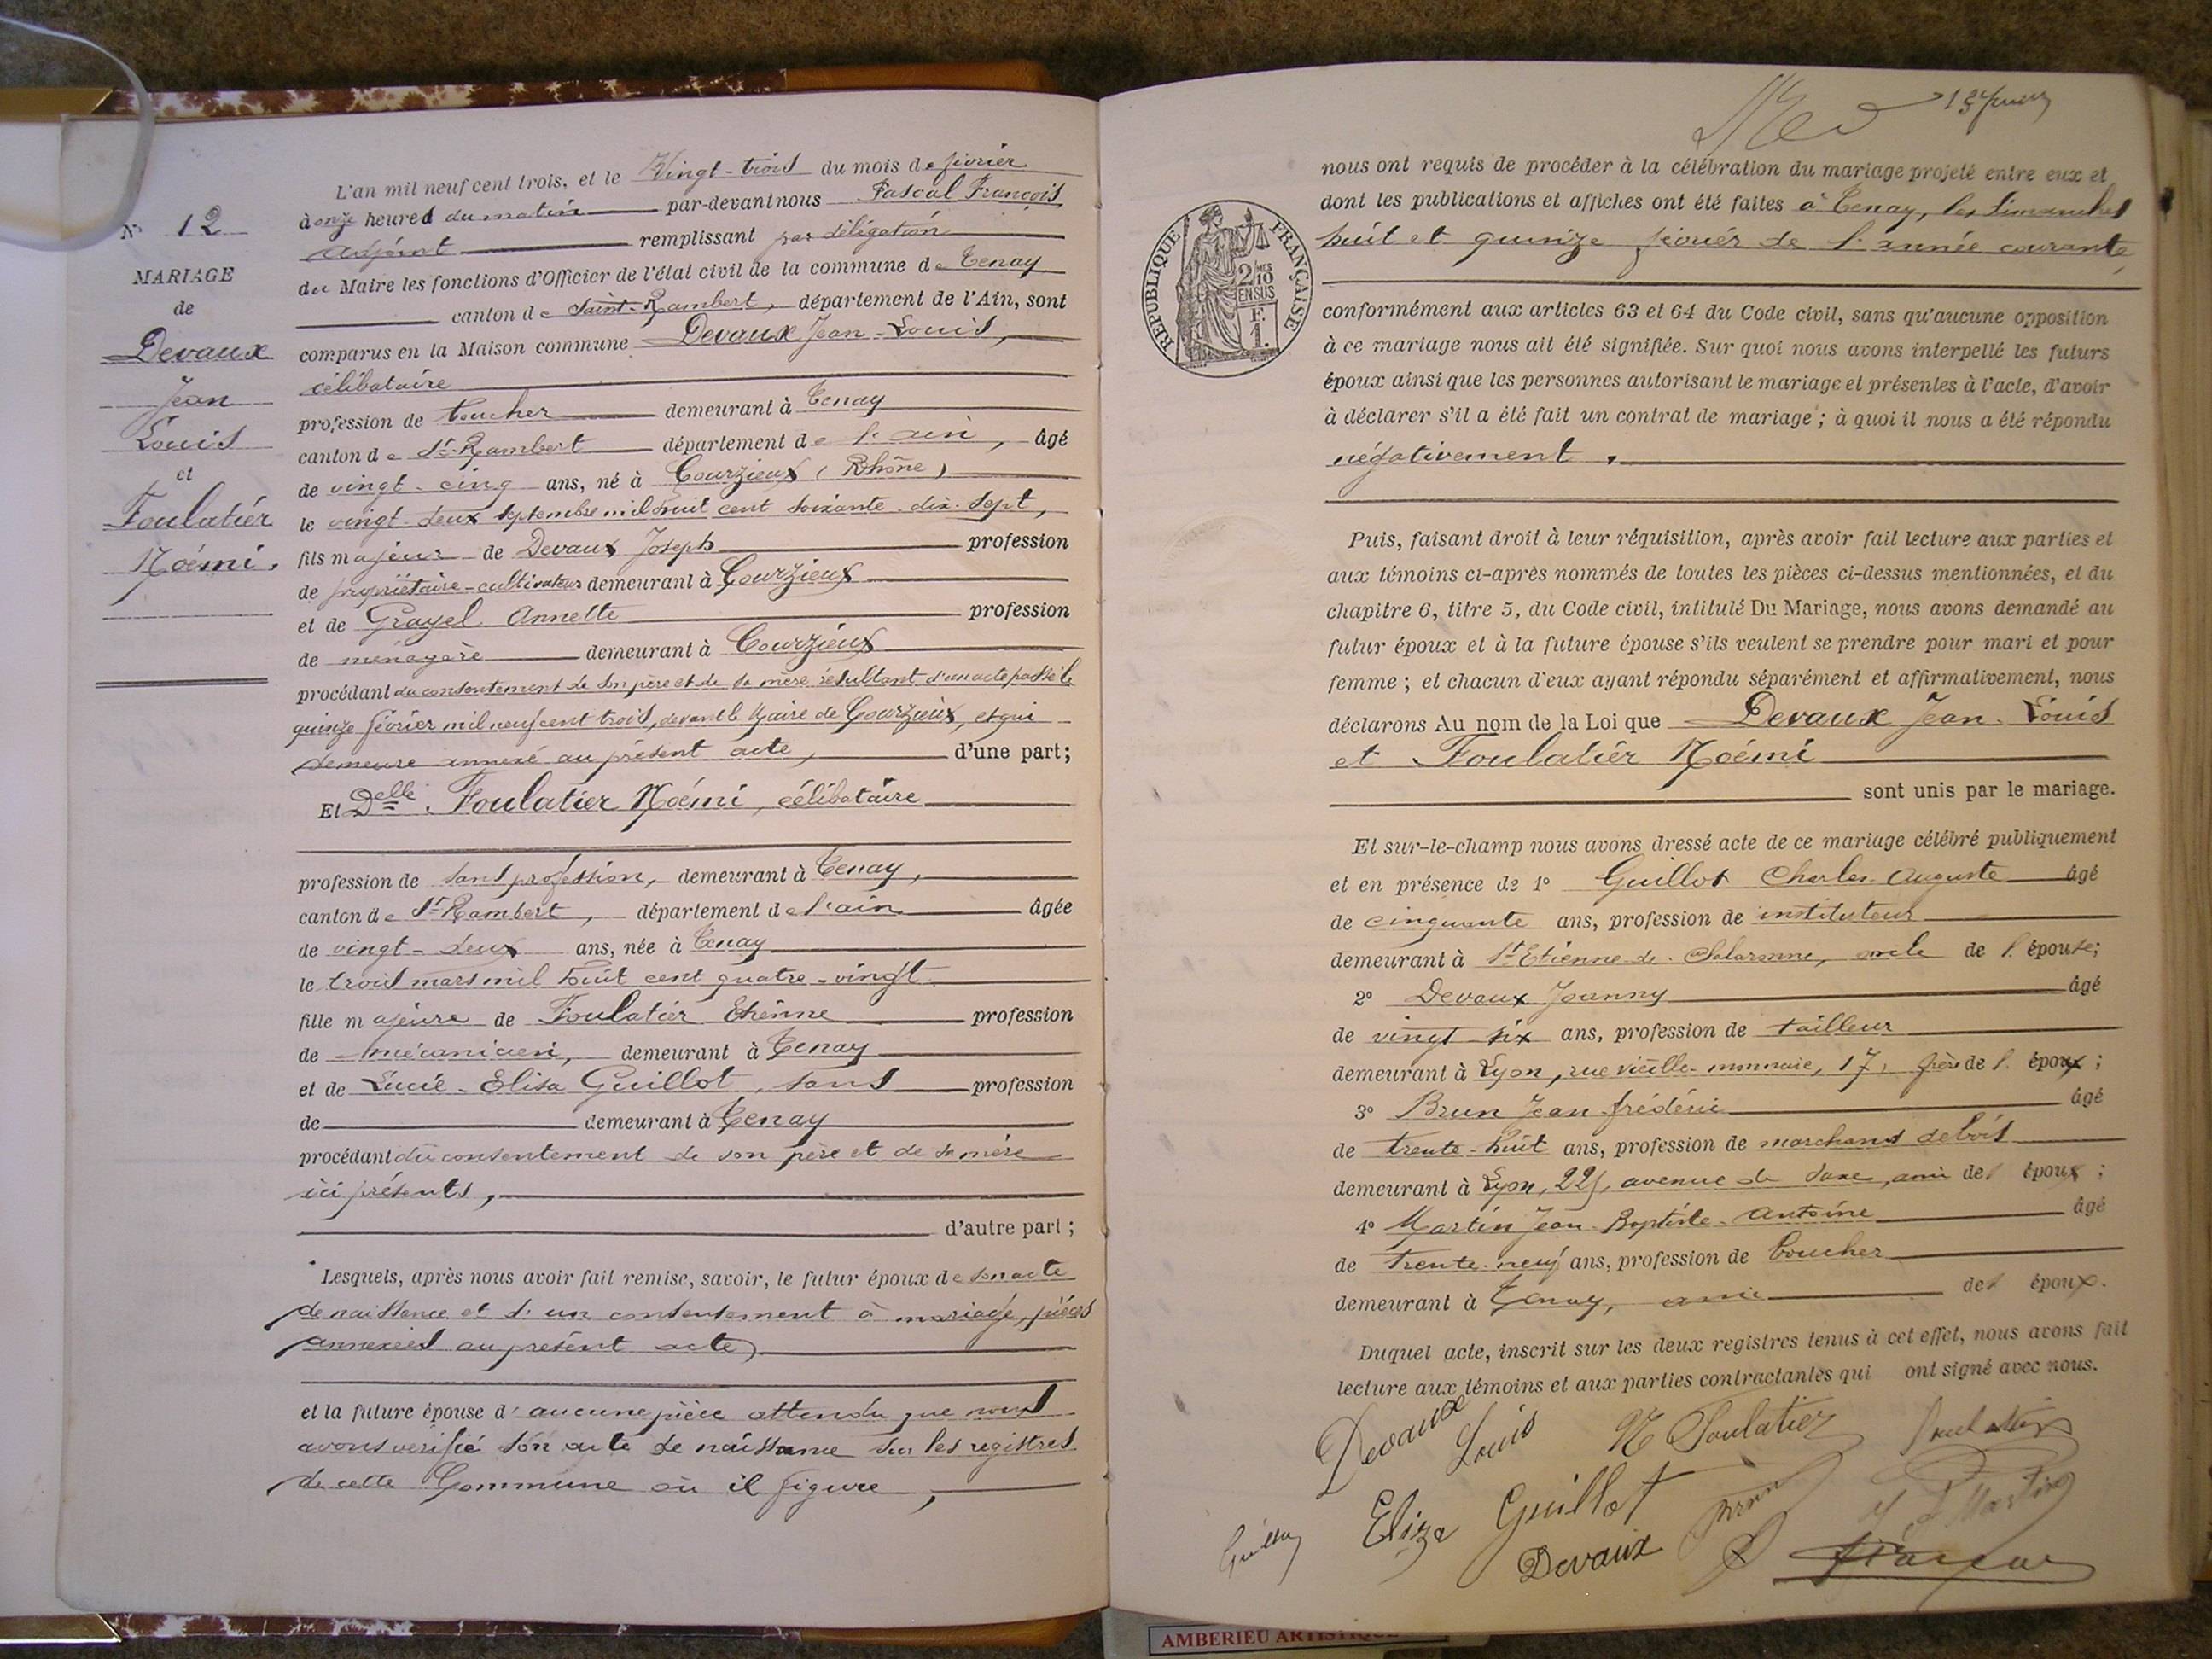 N° 12
MARIAGE
de
Devaux
Jean
Louis
et
Foulatier
Noémi.
L'an mil neuf cent trois, et le Vingt-trois du mois de février
à onze heures du matin par-devant nous Pascal François,
adjoint remplissant par délégation
du Maire les fonctions d'Officier de l'état civil de la commune de Tenay
canton de Saint-Rambert, département de l'Ain, sont
comparus en la Maison commune Devaux Jean-Louis,
célibataire
profession de boucher demeurant à Tenay
canton de St-Rambert département de l'ain, âgé
de vingt-cinq ans, né à Courzieux (Rhône)
le vingt-deux septembre mil huit cent soixante-dix-sept,
fils majeur de Devaux Joseph profession
de propriétaire-cultivateur demeurant à Courzieux
et de Grayel Annette profession
de ménagère demeurant à Courzieux
procédant du consentement de son père et de sa mère résultant d'un acte passé le
quinze février mil neuf cent trois, devant le Maire de Courzieux, et qui
demeure annexé au présent acte, d'une part;
Et Delle Foulatier Noémi, célibataire
profession de sans profession, demeurant à Tenay,
canton de St-Rambert, département de l'ain âgée
de vingt-deux ans, née à Tenay
le trois mars mil huit cent quatre-vingt
fille majeure de Foulatier Etienne profession
de mécanicien, demeurant à Tenay
et de Lucie-Elisa Guillot, sans profession
de demeurant à Tenay
procédant du consentement de son père et de sa mère
ici présents,
d'autre part;
Lesquels, après nous avoir fait remise, savoir, le futur époux de son acte
de naissance et d'un consentement à mariage, pièces
annexées au présent acte,
et la future épouse d'aucune pièce attendu que nous
avons vérifié son acte de naissance sur les registres
de cette Commune où il figure,
nous ont requis de procéder à la célébration du mariage projeté entre eux et
dont les publications et affiches ont été faites à Tenay, les dimanches
huit et quinze février de l'année courante,
RÉPUBLIQUE FRANÇAISE
2/10
EN SUS
F.
1.
conformément aux articles 63 et 64 du Code civil, sans qu'aucune opposition
à ce mariage nous ait été signifiée. Sur quoi nous avons interpellé les futurs
époux ainsi que les personnes autorisant le mariage et présentes à l'acte, d'avoir
à déclarer s'il a été fait un contrat de mariage; à quoi il nous a été répondu
négativement.
Puis, faisant droit à leur réquisition, après avoir fait lecture aux parties et
aux témoins ci-après nommés de toutes les pièces ci-dessus mentionnées, et du
chapitre 6, titre 5, du Code civil, intitulé Du Mariage, nous avons demandé au
futur époux et à la future épouse s'ils veulent se prendre pour mari et pour
femme; et chacun d'eux ayant répondu séparément et affirmativement, nous
déclarons Au nom de la Loi que Devaux Jean-Louis
et Foulatier Noémi
sont unis par le mariage.
Et sur-le-champ nous avons dressé acte de ce mariage célébré publiquement
et en présence de 1° Guillot Charles-Auguste âgé
de cinquante ans, profession de instituteur
demeurant à St-Etienne-de-Chalaronne, oncle de l'épouse;
2° Devaux Joanny âgé
de vingt-six ans, profession de tailleur
demeurant à Lyon, rue vieille-monnaie, 17, frère de l'époux;
3° Brun Jean-frédéric âgé
de trente-huit ans, profession de marchand de bois
demeurant à Lyon, avenue de Saxe, ami de l'époux;
4° Martin Jean-Baptiste-Antoine âgé
de trente-neuf ans, profession de boucher
demeurant à Tenay, ami de l'époux.
Duquel acte, inscrit sur les deux registres tenus à cet effet, nous avons fait
lecture aux témoins et aux parties contractantes qui ont signé avec nous.
Devaux Louis N Foulatier Foulatier
Guillot Eliza Guillot Brun Martin
Devaux
AMBERIEU ARTISTIQUE